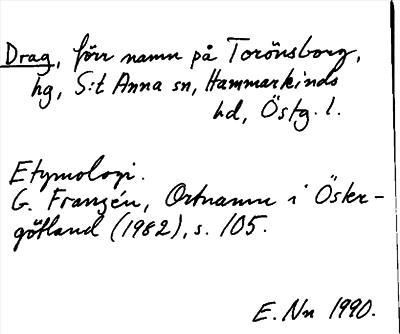 Drag, förr namn på Torönsborg,
hg, S:t Anna sn, Hammarkinds
hd, Östg. l.
Etymologi.
G. Franzén, Ortnamn i Öster-
götland (1982), s. 105.
E. Nn 1990.